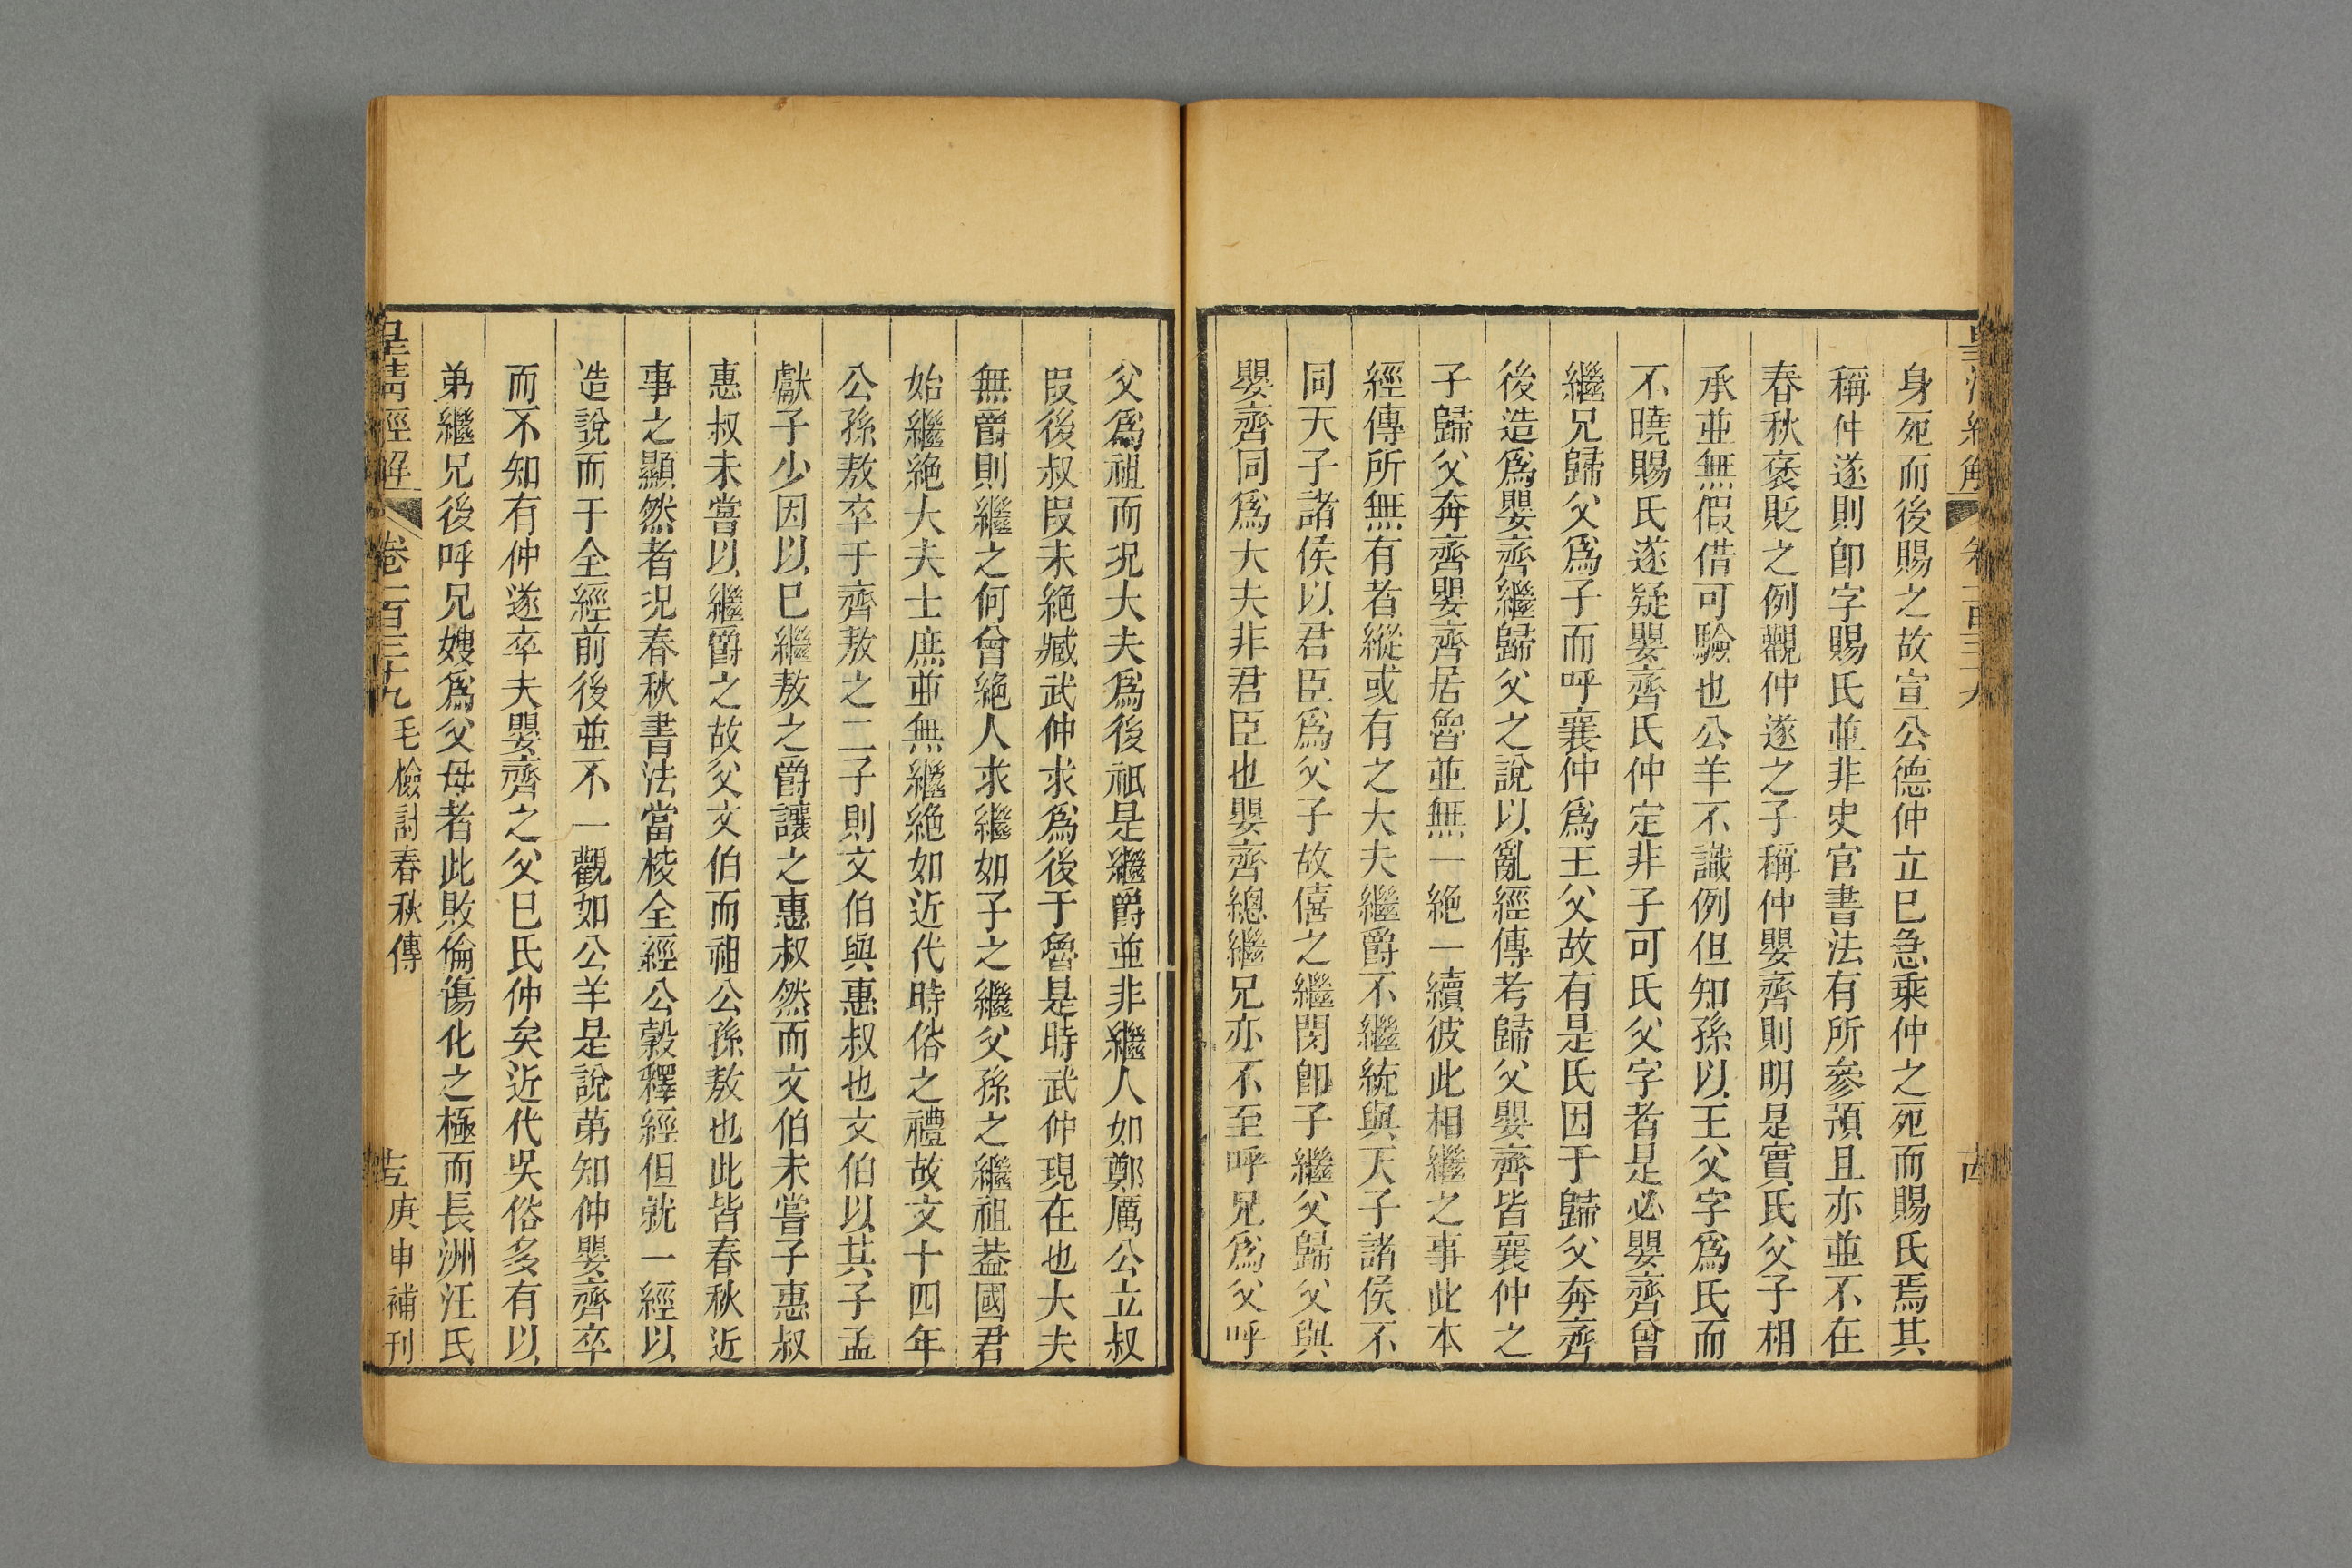 身死而後賜之故宣公德仲立巳急乘仲之死而賜氏焉其
稱仲遂則卽字賜氏並非史官書法有所參預且亦並不在
春秋褒貶之例觀仲遂之子稱仲嬰齊則明是實氏父子相
承並無假借可驗也公羊不識例但知孫以王父字爲氏而
不曉賜氏遂疑嬰齊氏仲定非子可氏父字者是必嬰齊曾
繼兄歸父爲子而呼襄仲爲王父故有是氏因于歸父奔齊
後造爲嬰齊繼歸父之說以亂經傳考歸父嬰齊皆襄仲之
子歸父奔齊嬰齊居魯並無一絶一續彼此相繼之事此本
經傳所無有者縱或有之大夫繼爵不繼統與天子諸侯不
同天子諸侯以君臣爲父子故僖之繼閔卽子繼父歸父與
嬰齊同爲大夫非君臣也嬰齊總繼兄亦不至呼兄爲父呼
父爲祖而況大夫爲後祇是繼爵並非繼人如鄭厲公立叔
叚後叔叚未絶臧武仲求爲後于魯是時武仲現在也大夫
無爵則繼之何曾絶人求繼如子之繼父孫之繼祖葢國君
始繼絶大夫士庶並無繼絶如近代時俗之禮故文十四年
公孫敖卒于齊敖之二子則文伯與惠叔也文伯以其子孟
獻子少因以巳繼敖之爵讓之惠叔然而文伯未嘗子惠叔
惠叔未嘗以繼爵之故父文伯而祖公孫敖也此皆春秋近
事之顯然者況春秋書法當棱全經公穀釋經但就一經以
造說而于全經前後並不一觀如公羊是說苐知仲嬰齊卒
而不知有仲遂卒夫嬰齊之父巳氏仲矣近代吳俗多有以
弟繼兄後呼兄嫂爲父母者此敗倫傷化之極而長洲汪氏
皇清經解 卷一百三十九 毛檢討春秋傳 庚申補刊